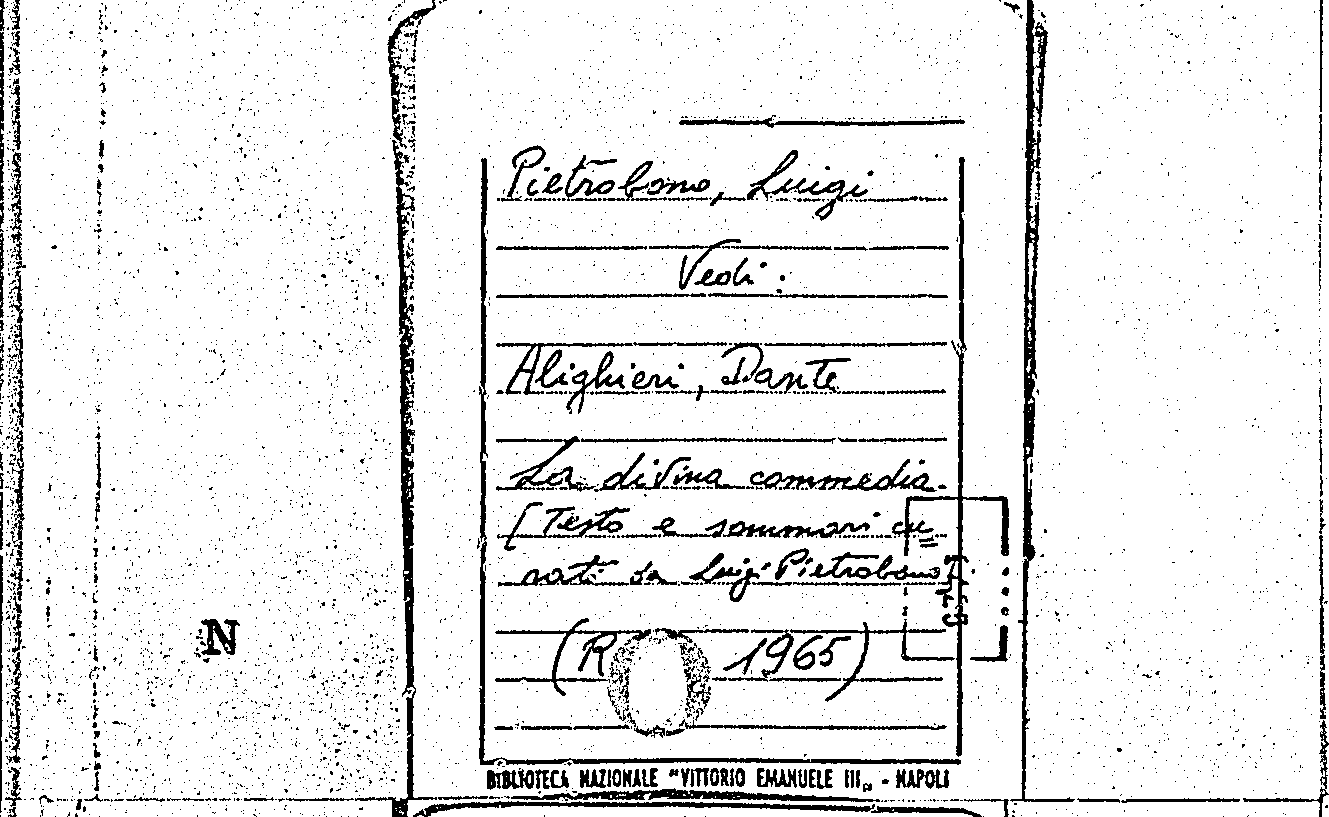 Pietrobono, Luigi
Vedi:
Alighieri, Dante
La divina commedia.
[Testo e sommari cu
rati da Luigi Pietrobono].
(R 1965)
N
BIBLIOTECA NAZIONALE "VITTORIO EMANUELE III„ - NAPOLI